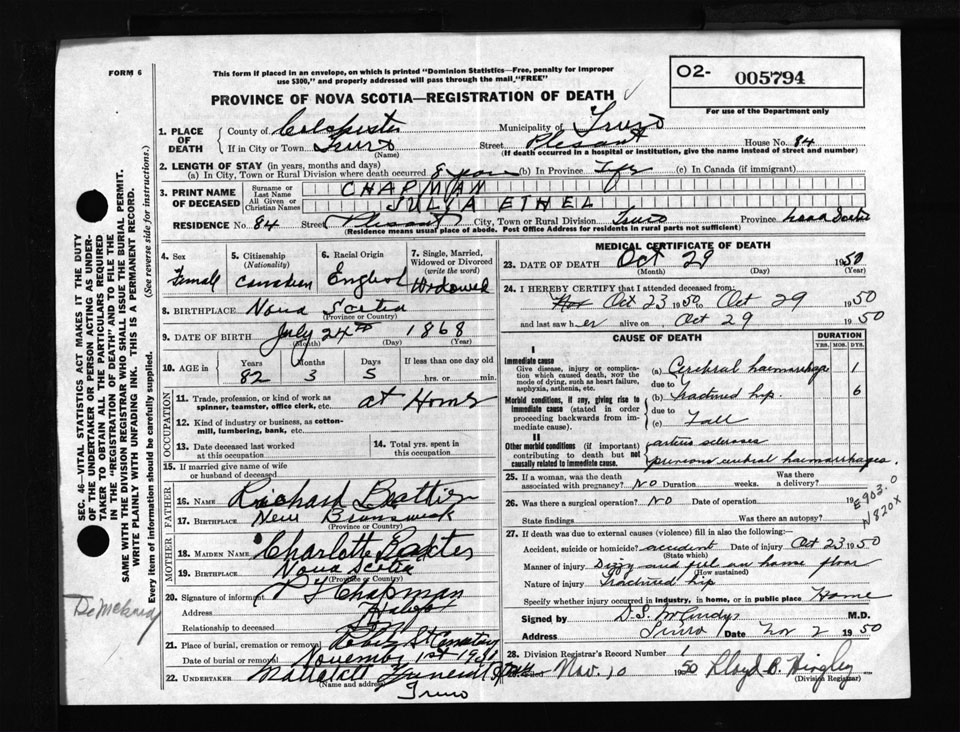 FORM 6
This form if placed in an envelope, on which is printed "Dominion Statistics—Free, penalty for improper
use $300," and properly addressed will pass through the mail "FREE"
O2- 005794
For use of the Department only
PROVINCE OF NOVA SCOTIA—REGISTRATION OF DEATH
1. PLACE OF DEATH
County of Colchester Municipality of Truro
If in City or Town Truro Street Pleasant House No. 84
(Name) (If death occurred in a hospital or institution, give the name instead of street and number)
2. LENGTH OF STAY (in years, months and days)
(a) In City, Town or Rural Division where death occurred 8 years (b) In Province Life (c) In Canada (if immigrant)
3. PRINT NAME OF DECEASED
Surname or Last Name CHAPMAN
All Given or Christian Names JULIA ETHEL
RESIDENCE No. 84 Street Pleasant City, Town or Rural Division Truro Province Nova Scotia
(Residence means usual place of abode. Post Office Address for residents in rural parts not sufficient)
4. Sex
Female
5. Citizenship (Nationality)
Canadian
6. Racial Origin
English
7. Single, Married, Widowed or Divorced (write the word)
Widowed
8. BIRTHPLACE Nova Scotia
(Province or Country)
9. DATE OF BIRTH July 24th 1868
(Month) (Day) (Year)
10. AGE in Years Months Days If less than one day old
82 3 5 hrs. or min.
OCCUPATION
11. Trade, profession or kind of work as spinner, teamster, office clerk, etc. at Home
12. Kind of industry or business, as cotton-mill, lumbering, bank, etc.
13. Date deceased last worked at this occupation
14. Total yrs. spent in this occupation
15. If married give name of wife or husband of deceased
FATHER
16. Name Richard Beattie
17. Birthplace New Brunswick
(Province or Country)
MOTHER
18. Maiden Name Charlotte Baxter
19. Birthplace Nova Scotia
(Province or Country)
20. Signature of informant Chapman
Address Halifax
Relationship to deceased Son
21. Place of burial, cremation or removal Robie St Cemetery
Date of burial or removal November 1st 1950
22. UNDERTAKER Mattatall Funeral
(Name and address)
Truro
MEDICAL CERTIFICATE OF DEATH
23. DATE OF DEATH Oct 29 1950
(Month) (Day) (Year)
24. I HEREBY CERTIFY that I attended deceased from:
Nov Oct 23 1950 to Oct 29 1950
and last saw her alive on Oct 29 1950
CAUSE OF DEATH
DURATION
YRS. MOS. DYS.
I
Immediate cause
Give disease, injury or complication which caused death, NOT the mode of dying, such as heart failure, asphyxia, asthenia, etc.
(a) Cerebral haemorrhage 1
due to
Morbid conditions, if any, giving rise to immediate cause (stated in order proceeding backwards from immediate cause).
(b) Fractured hip 6
due to
(c) Fall
II
Other morbid conditions (if important) contributing to death but not causally related to immediate cause.
arterio sclerosis
previous cerebral haemorrhages.
25. If a woman, was the death associated with pregnancy? NO Duration weeks. Was there a delivery?
26. Was there a surgical operation? NO Date of operation 19
State findings Was there an autopsy?
E903.0
N820X
27. If death was due to external causes (violence) fill in also the following:—
Accident, suicide or homicide? accident Date of injury Oct 23 1950
(State which)
Manner of injury Dizzy and fell on home floor
(How sustained)
Nature of injury Fractured hip
Specify whether injury occurred in industry, in home, or in public place Home
Signed by D.S. McCurdy M.D.
Address Truro Date Nov 2 1950
28. Division Registrar's Record Number
Nov. 10 1950 Lloyd B. Hingley
(Division Registrar)
SEC. 46—VITAL STATISTICS ACT MAKES IT THE DUTY
OF THE UNDERTAKER OR PERSON ACTING AS UNDER-
TAKER TO OBTAIN ALL THE PARTICULARS REQUIRED
IN THE "REGISTRATION OF DEATH" AND TO FILE THE
SAME WITH THE DIVISION REGISTRAR WHO SHALL ISSUE THE BURIAL PERMIT.
WRITE PLAINLY WITH UNFADING INK. THIS IS A PERMANENT RECORD.
Every item of information should be carefully supplied. (See reverse side for instructions.)